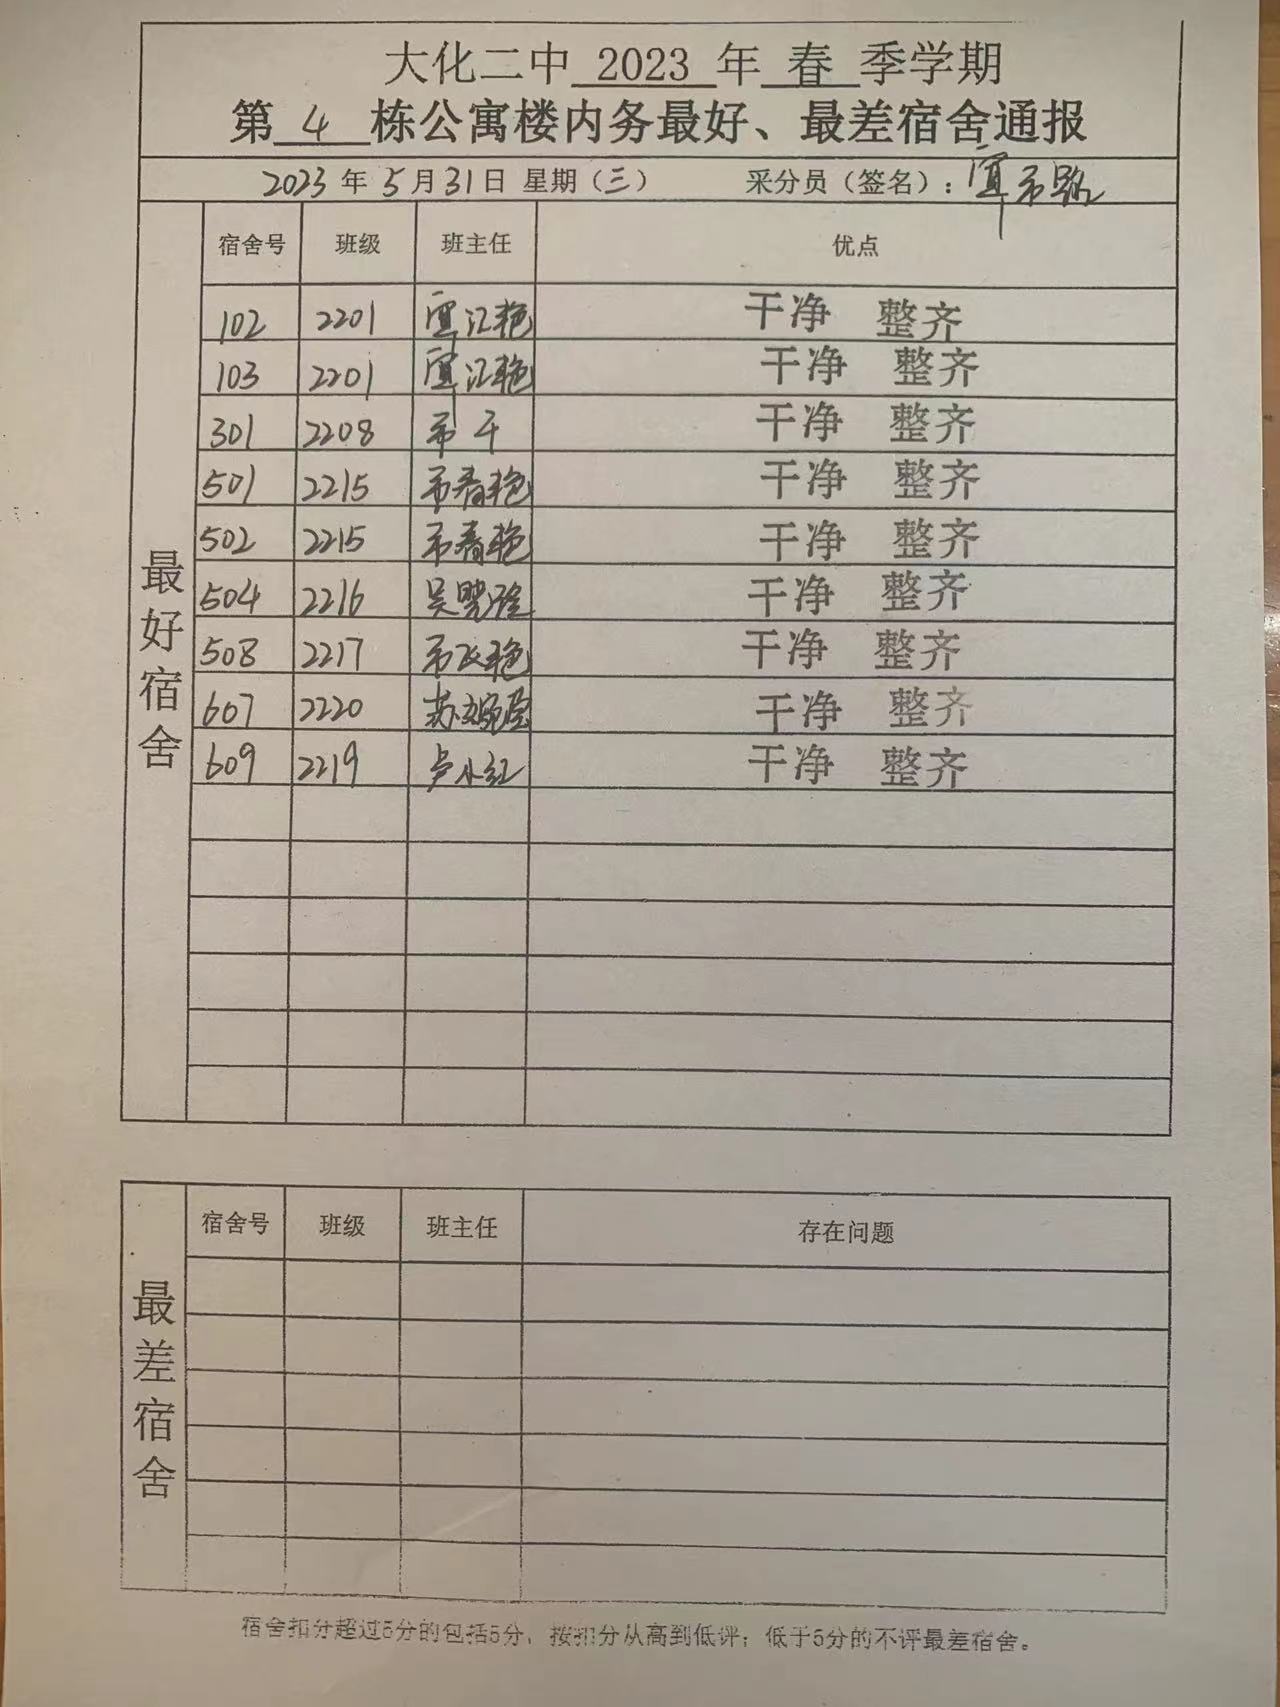 大化二中 2023 年 春 季学期
第 4 栋公寓楼内务最好、最差宿舍通报
2023 年 5 月 31 日 星期（三） 采分员（签名）：
最好宿舍
宿舍号 班级 班主任 优点
102 2201 干净 整齐
103 2201 干净 整齐
301 2208 韦干 干净 整齐
501 2215 韦春艳 干净 整齐
502 2215 韦春艳 干净 整齐
504 2216 干净 整齐
508 2217 干净 整齐
607 2220 干净 整齐
609 2219 卢小红 干净 整齐
最差宿舍
宿舍号 班级 班主任 存在问题
宿舍扣分超过5分的包括5分，按扣分从高到低评；低于5分的不评最差宿舍。